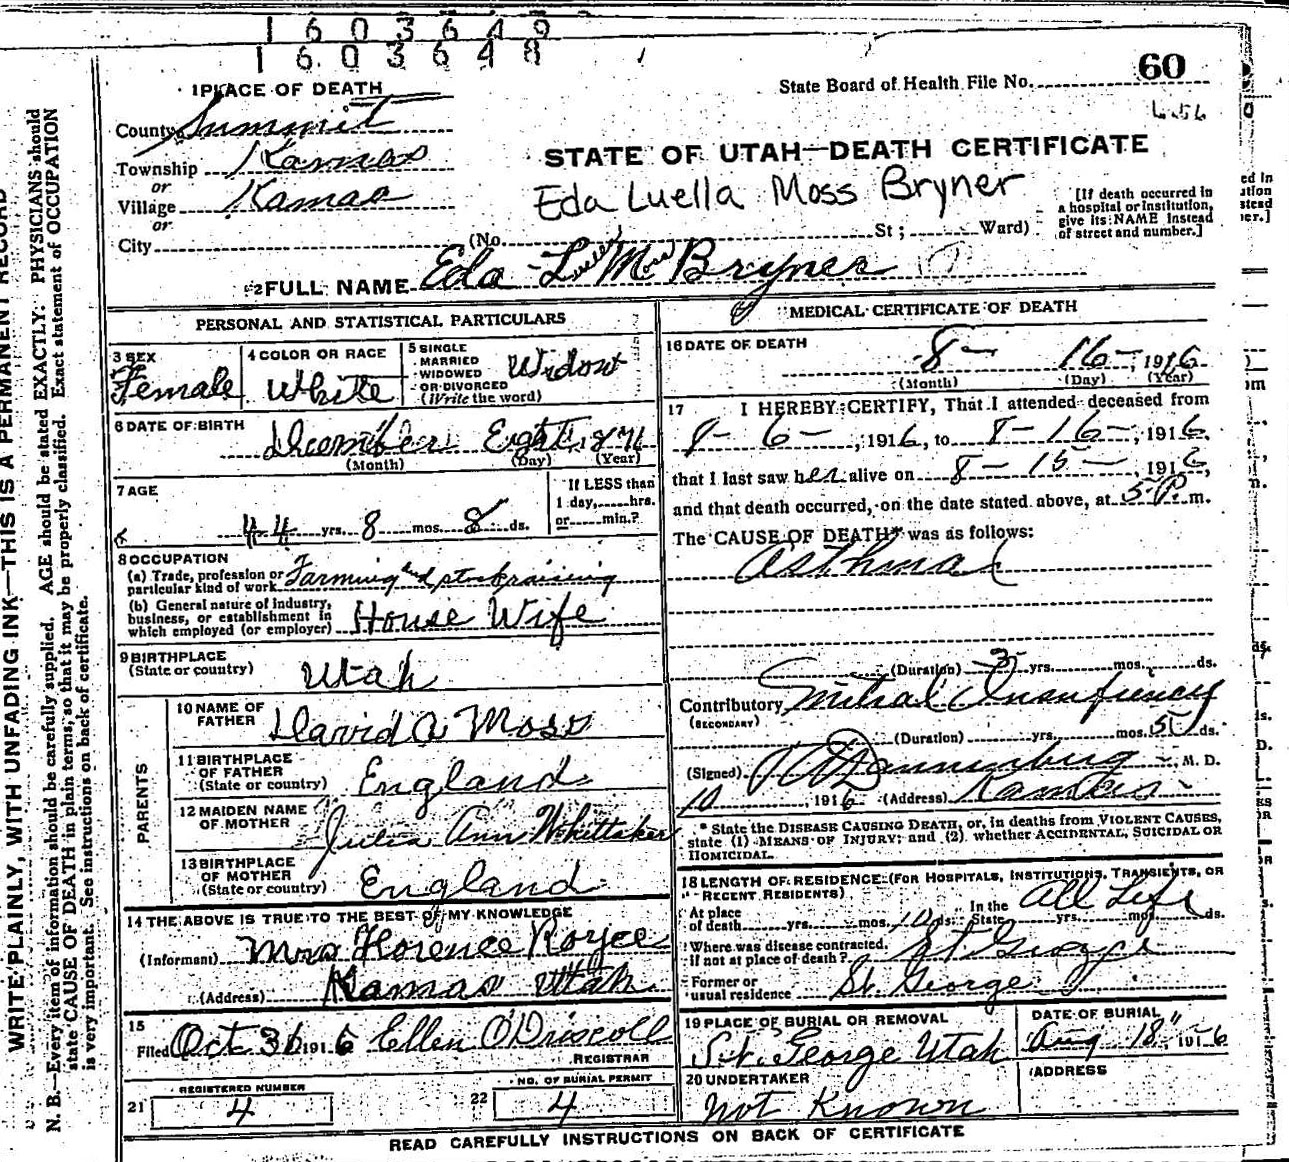 1603649
1603648
1 PLACE OF DEATH
State Board of Health File No. 60
656
County Summit
Township Kamas
or
Village Kamas
or
City
STATE OF UTAH—DEATH CERTIFICATE
Eda Luella Moss Bryner
[If death occurred in a hospital or institution, give its NAME instead of street and number.]
(No. St ; Ward)
2 FULL NAME Eda Luella Moss Bryner
PERSONAL AND STATISTICAL PARTICULARS
3 SEX
Female
4 COLOR OR RACE
White
5 SINGLE
MARRIED
WIDOWED
OR DIVORCED
(Write the word)
Widow
6 DATE OF BIRTH
December Eight 1871
(Month) (Day) (Year)
7 AGE
44 yrs. 8 mos. 8 ds.
If LESS than
1 day, hrs.
or min.?
8 OCCUPATION
(a) Trade, profession or
particular kind of work Farming and stockraising
(b) General nature of industry,
business, or establishment in
which employed (or employer) House Wife
9 BIRTHPLACE
(State or country) Utah
PARENTS
10 NAME OF
FATHER David A Moss
11 BIRTHPLACE
OF FATHER
(State or country) England
12 MAIDEN NAME
OF MOTHER Julia Ann Whittaker
13 BIRTHPLACE
OF MOTHER
(State or country) England
14 THE ABOVE IS TRUE TO THE BEST OF MY KNOWLEDGE
(Informant) Mrs Florence Royce
(Address) Kamas Utah
15
Filed Oct 3 1916 Ellen O'Driscoll
REGISTRAR
21 REGISTERED NUMBER
4
22 NO. OF BURIAL PERMIT
4
MEDICAL CERTIFICATE OF DEATH
16 DATE OF DEATH
8— 16—, 1916
(Month) (Day) (Year)
17 I HEREBY CERTIFY, That I attended deceased from
8—6—, 1916, to 8—16—, 1916,
that I last saw her alive on 8—15—, 1916,
and that death occurred, on the date stated above, at 5 P. m.
The CAUSE OF DEATH* was as follows:
Asthma
(Duration) 3 yrs. mos. ds.
Contributory Mitral Insufficiency
(SECONDARY)
(Duration) yrs. mos. ds.
(Signed) M. D.
10, 1916 (Address) Kamas
* State the DISEASE CAUSING DEATH, or, in deaths from VIOLENT CAUSES,
state (1) MEANS OF INJURY; and (2) whether ACCIDENTAL, SUICIDAL OR
HOMICIDAL.
18 LENGTH OF RESIDENCE (FOR HOSPITALS, INSTITUTIONS, TRANSIENTS, OR
RECENT RESIDENTS)
At place
of death yrs. mos. 10 ds. In the State All Life yrs. mos. ds.
Where was disease contracted,
if not at place of death? St George
Former or
usual residence St. George
19 PLACE OF BURIAL OR REMOVAL
St. George Utah
DATE OF BURIAL
Aug 18", 1916
20 UNDERTAKER
Not Known
ADDRESS
READ CAREFULLY INSTRUCTIONS ON BACK OF CERTIFICATE
WRITE PLAINLY, WITH UNFADING INK—THIS IS A PERMANENT RECORD
N. B.—Every item of information should be carefully supplied. AGE should be stated EXACTLY. PHYSICIANS should
state CAUSE OF DEATH in plain terms, so that it may be properly classified. Exact statement of OCCUPATION
is very important. See instructions on back of certificate.